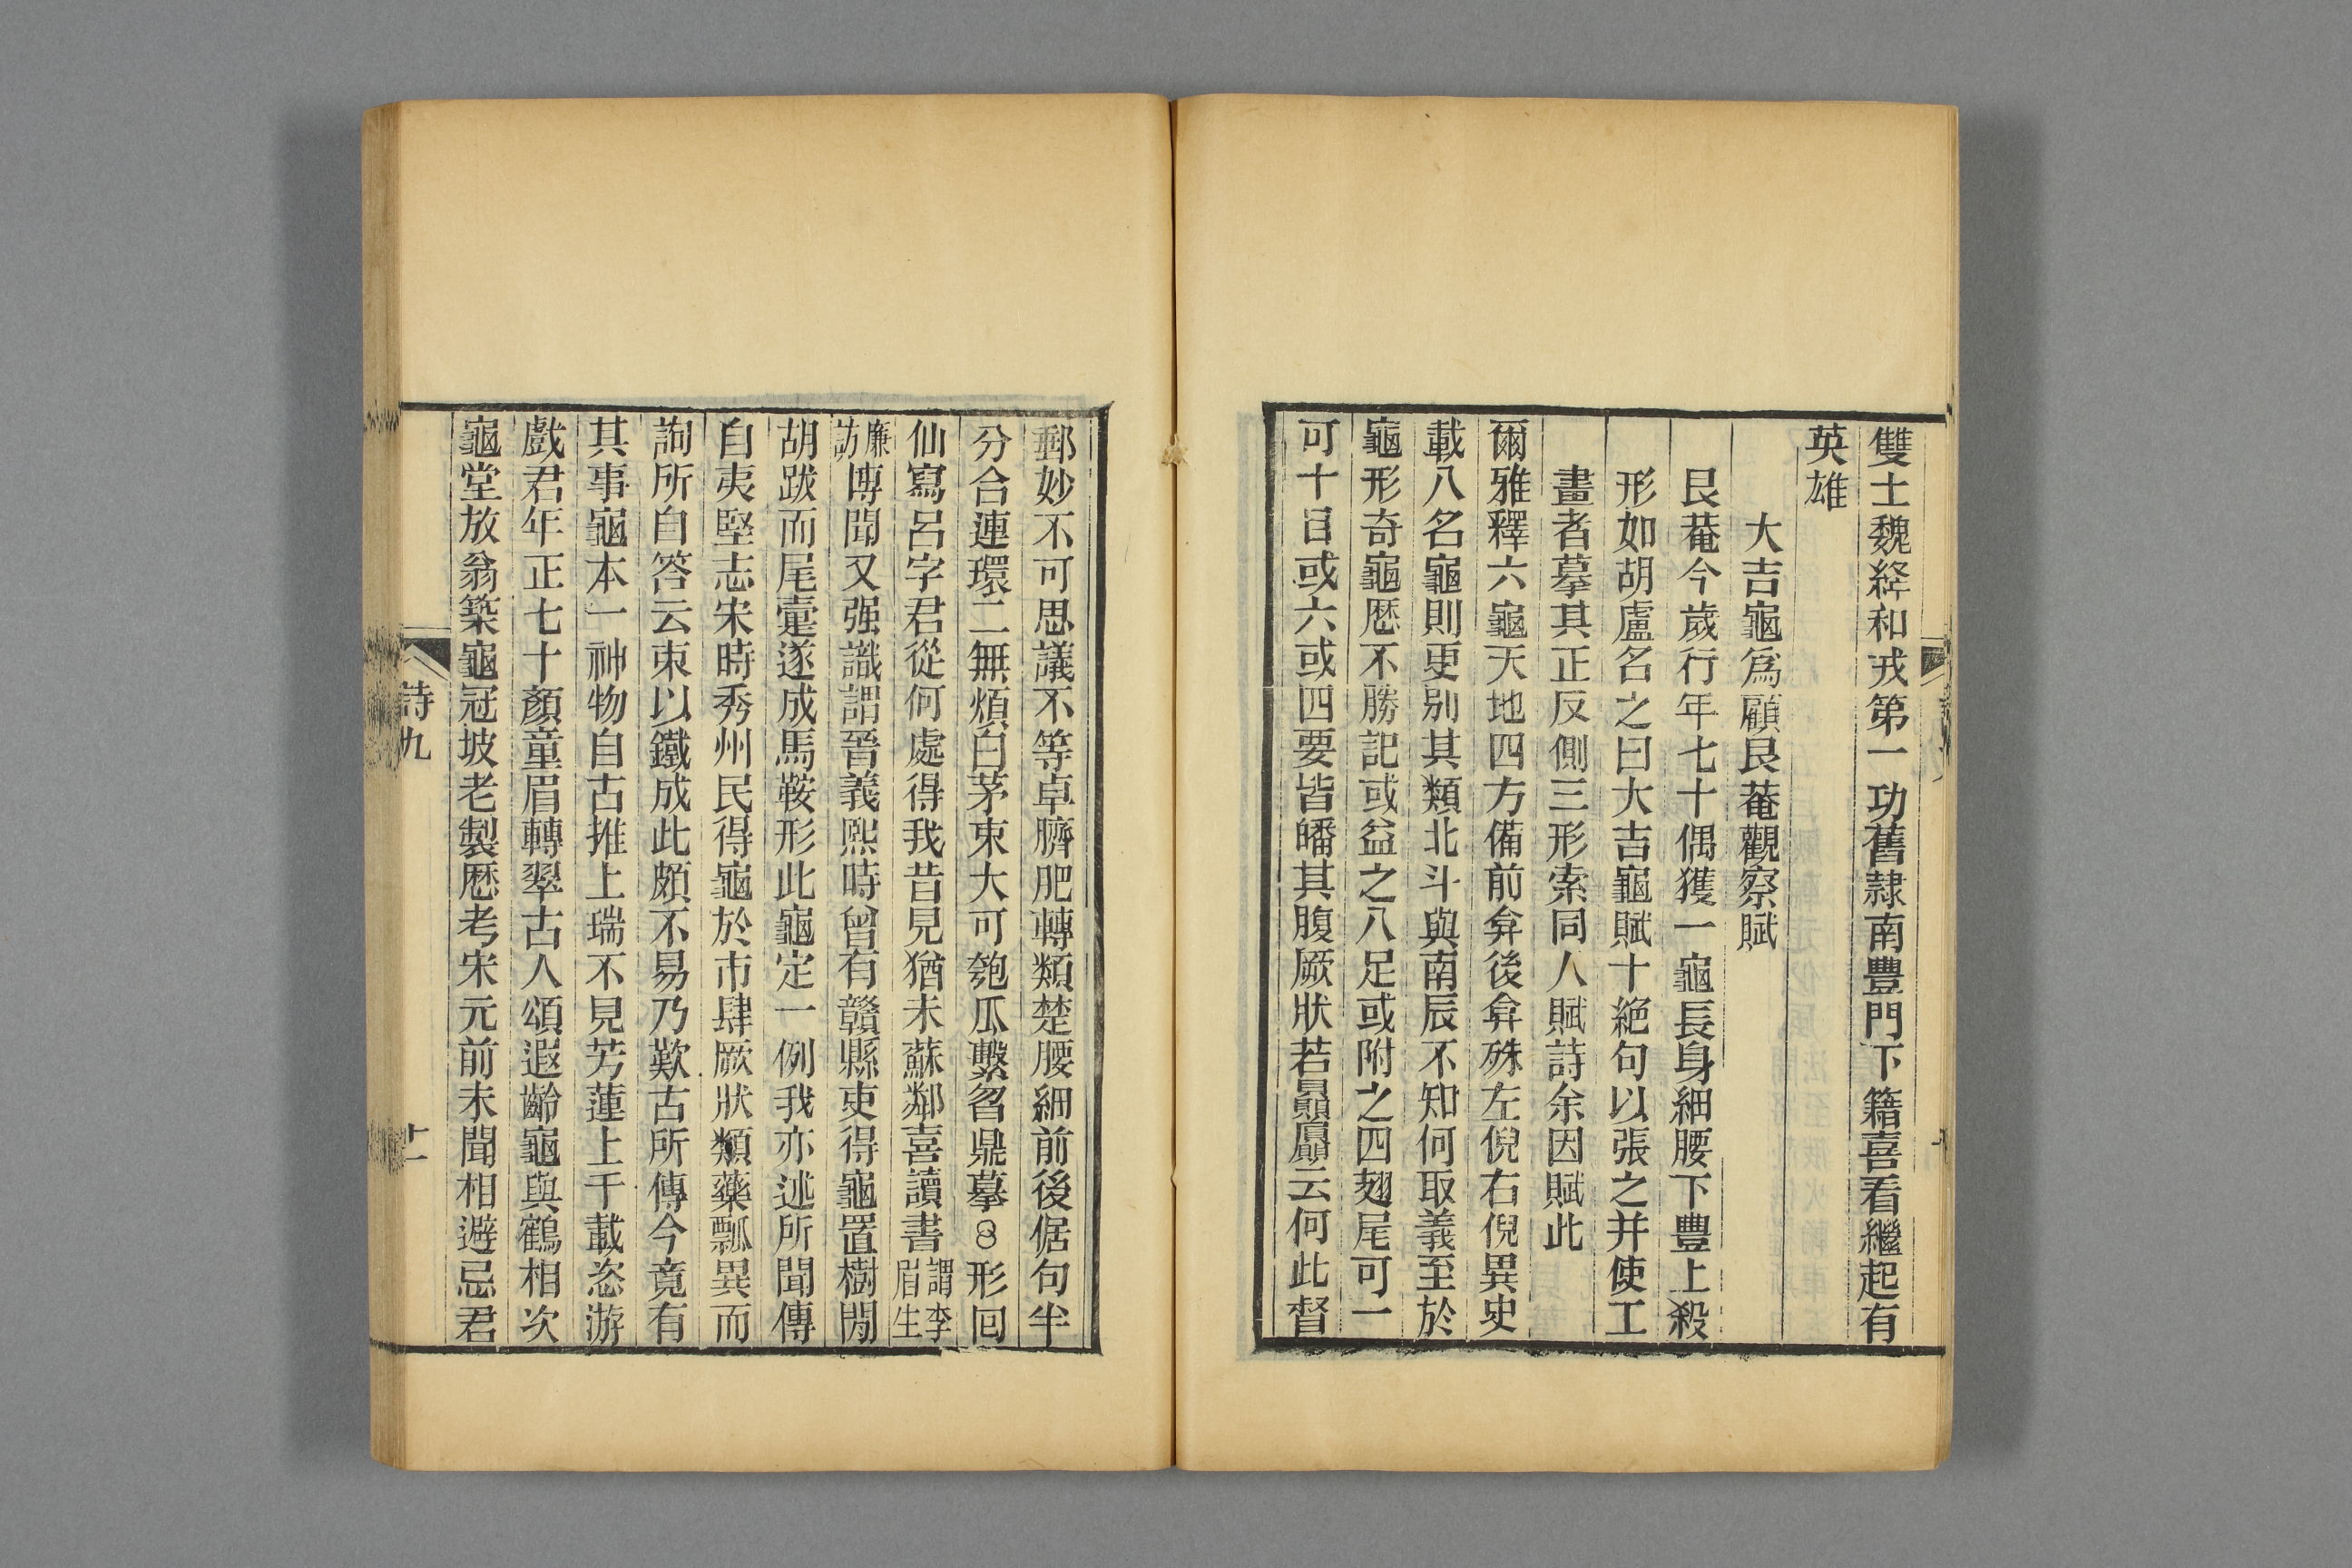 雙士魏絳和戎第一功舊隷南豐門下籍喜看繼起有
英雄
大吉龜爲顧艮菴觀察賦
艮菴今歲行年七十偶獲一龜長身細腰下豐上殺
形如胡盧名之曰大吉龜賦十絶句以張之并使工
畫者摹其正反側三形索同人賦詩余因賦此
爾雅釋六龜天地四方備前弇後弇殊左倪右倪異史
載八名龜則更别其類北斗與南辰不知何取義至於
龜形奇龜歴不勝記或益之八足或附之四翅尾可一
可十目或六或四要皆皤其腹厥狀若贔屭云何此督
郵妙不可思議不等卓臍肥轉類楚腰細前後倨句半
分合連環二無煩白茅束大可匏瓜繫㫚鼎摹8形回
仙寫呂字君從何處得我昔見猶未蘇鄰喜讀書謂李眉生
廉訪博聞又强識謂晉義熙時曾有贛縣吏得龜置樹閒
胡跋而尾疐遂成馬鞍形此龜定一例我亦述所聞傳
自夷堅志宋時秀州民得龜於市肆厥狀類藥瓢異而
詢所自答云束以鐵成此頗不易乃歎古所傳今竟有
其事龜本一神物自古推上瑞不見芳蓮上千載恣游
戲君年正七十顏童眉轉翠古人頌遐齡龜與鶴相次
龜堂放翁築龜冠坡老製歴考宋元前未聞相避忌君
詩九
十一